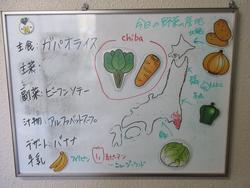 今日の野菜の産地
主食：ガパオライス
chiba
主菜：
副菜：ビーフンソテー
汁物：アルファベットスープ
デザート：バナナ
フィリピン
赤ピーマン
ニュージーランド
牛乳